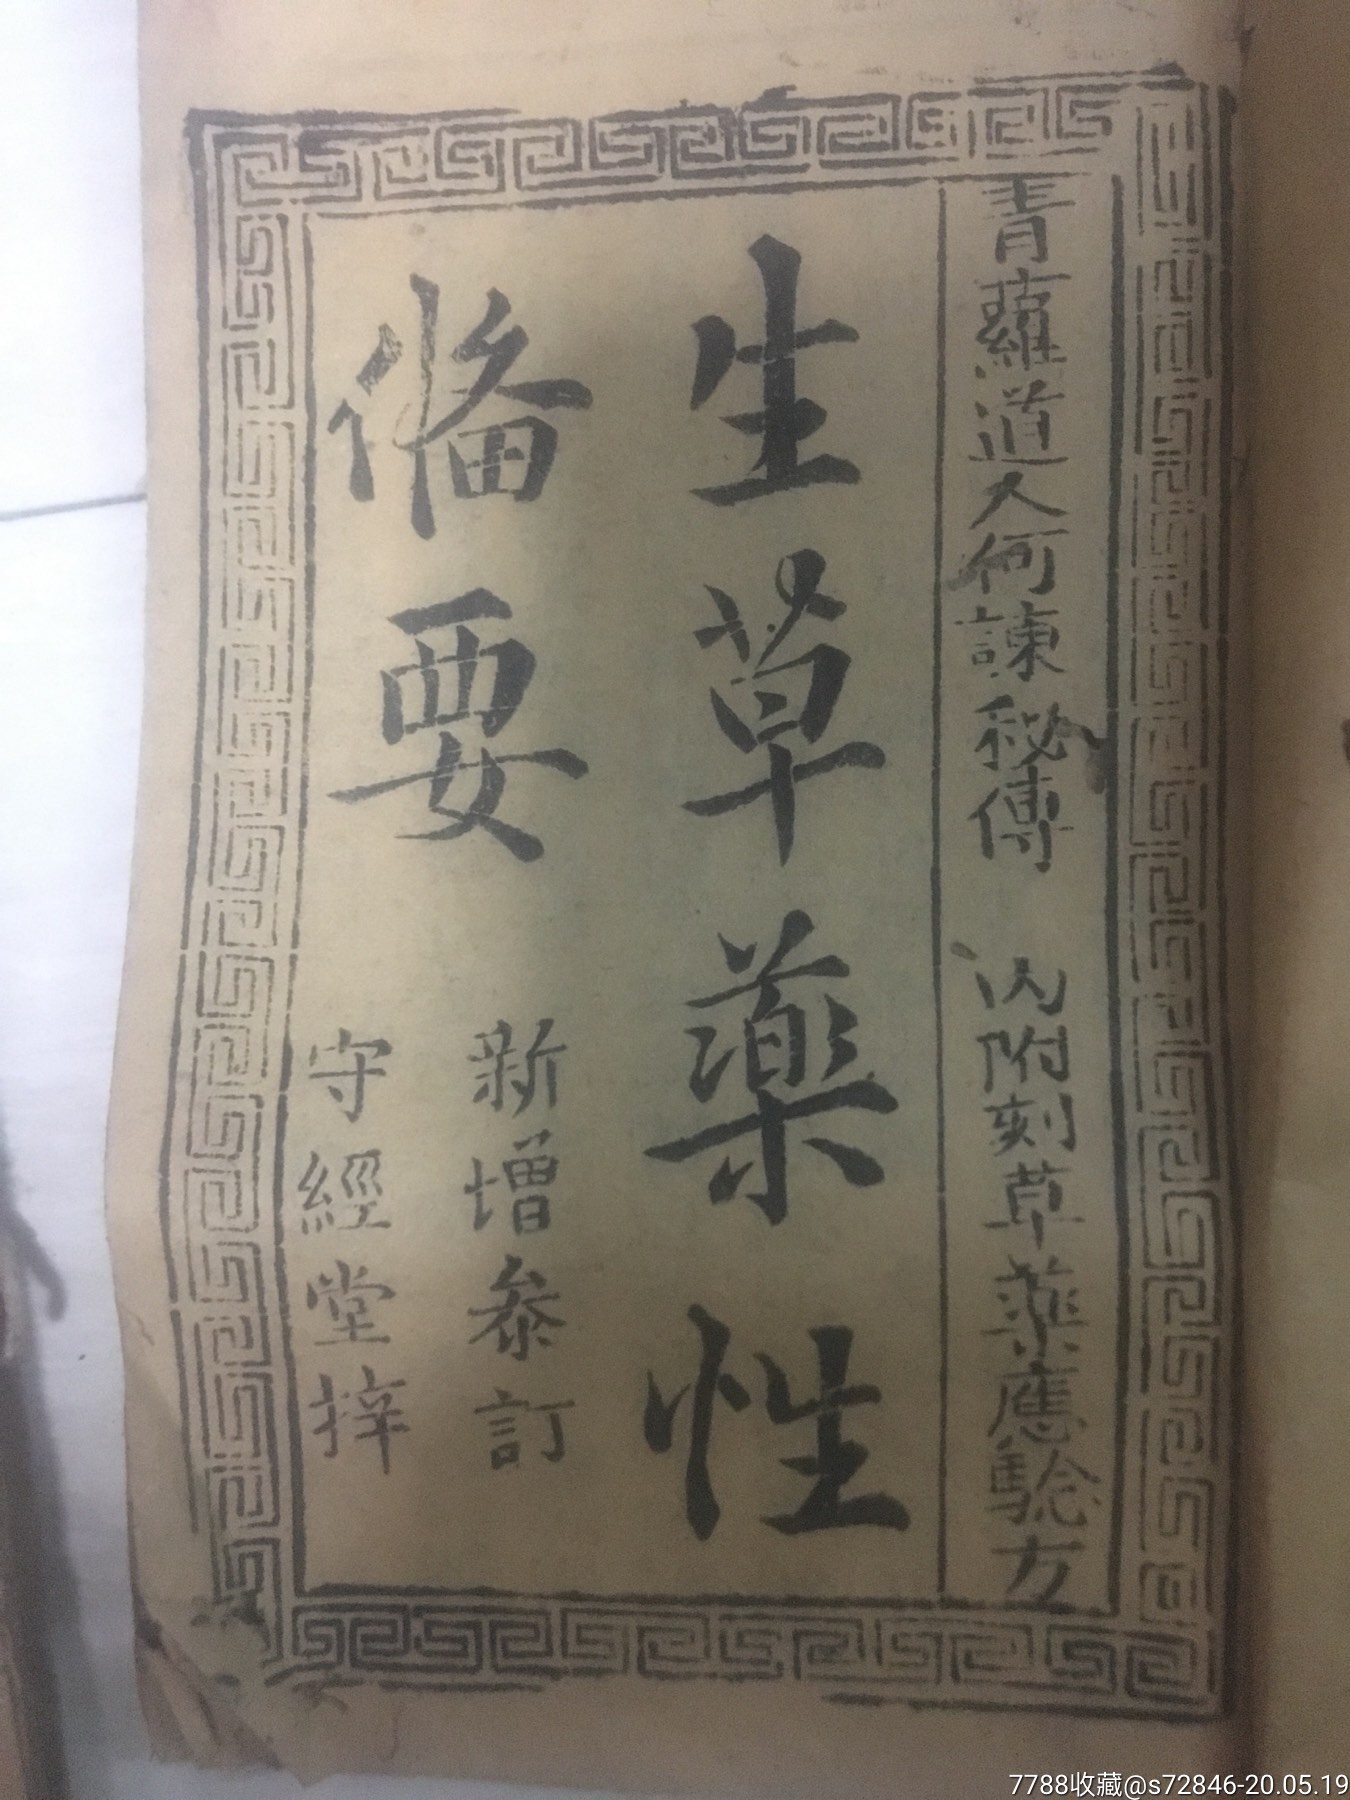 青蘿道人何諫秘傳 内附刻草藥應驗方
生草藥性
俻要
新增參訂
守經堂梓
7788收藏@s72846-20.05.19